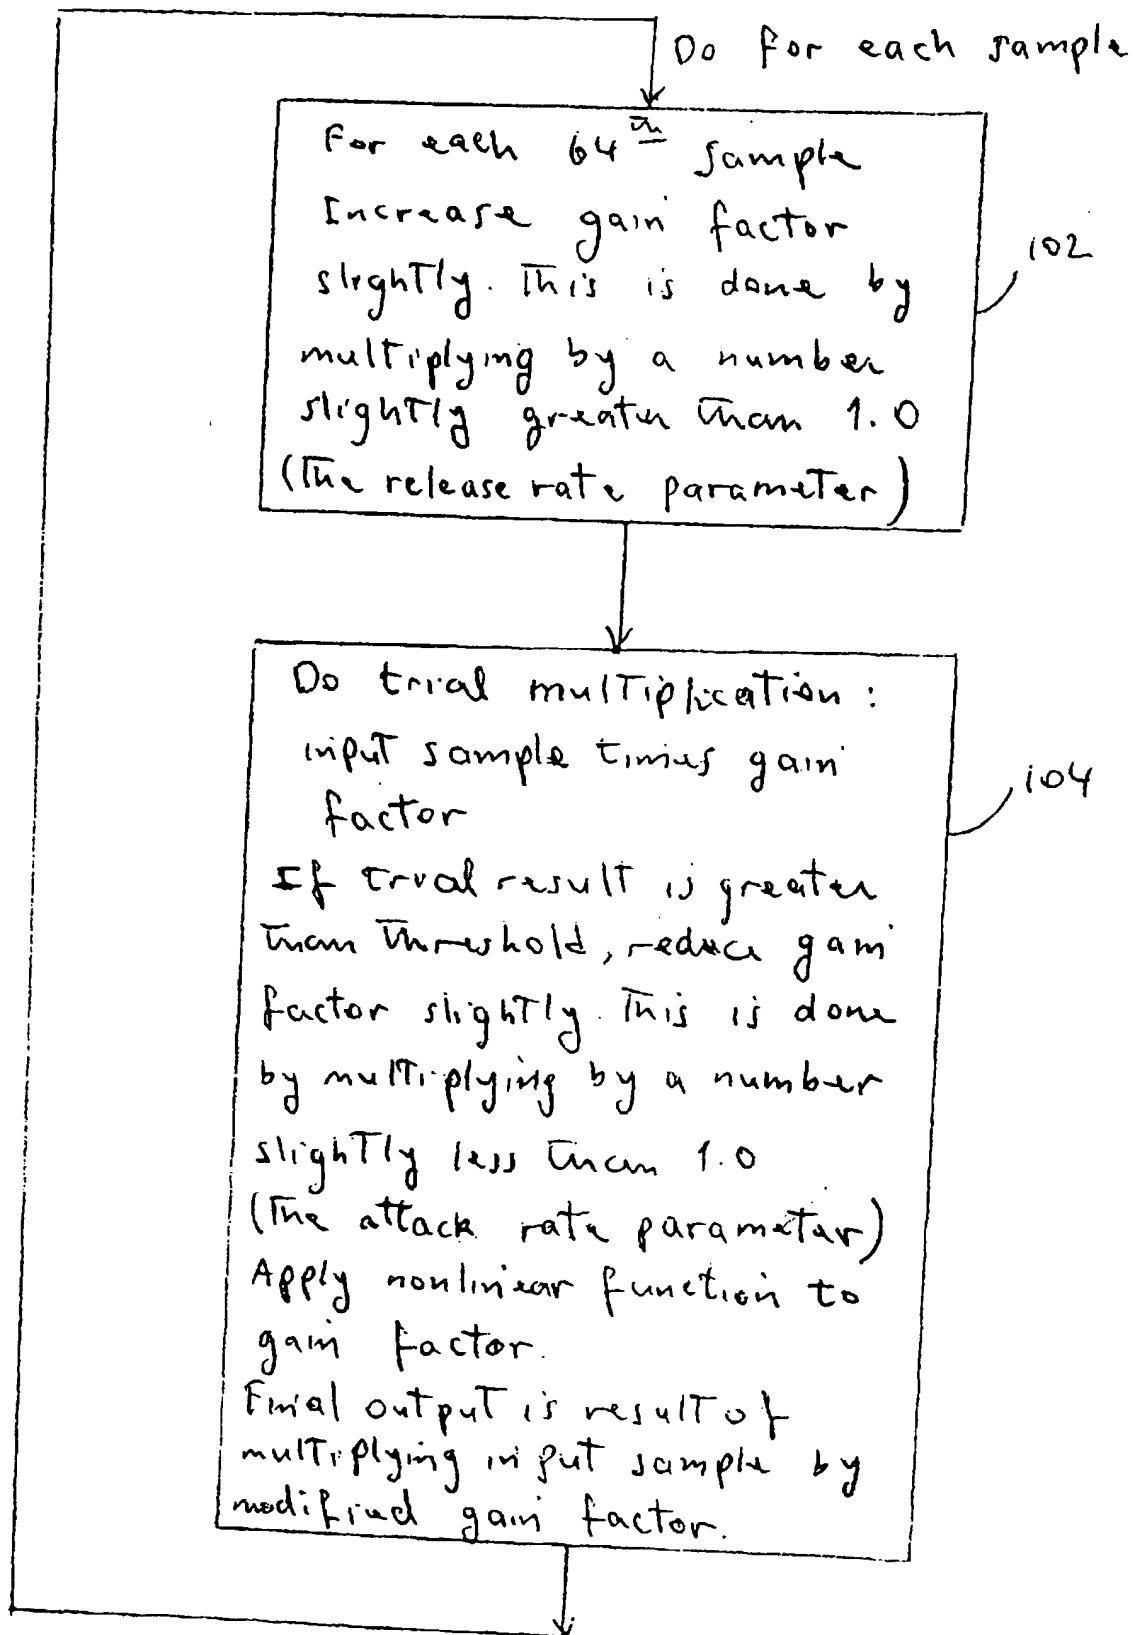 Do for each sample
For each 64th sample
Increase gain factor
slightly. This is done by
multiplying by a number
slightly greater than 1.0
(The release rate parameter)
102
Do trial multiplication:
input sample times gain
factor
If trial result is greater
than threshold, reduce gain
factor slightly. This is done
by multiplying by a number
slightly less than 1.0
(The attack rate parameter)
Apply nonlinear function to
gain factor.
Final output is result of
multiplying input sample by
modified gain factor.
104